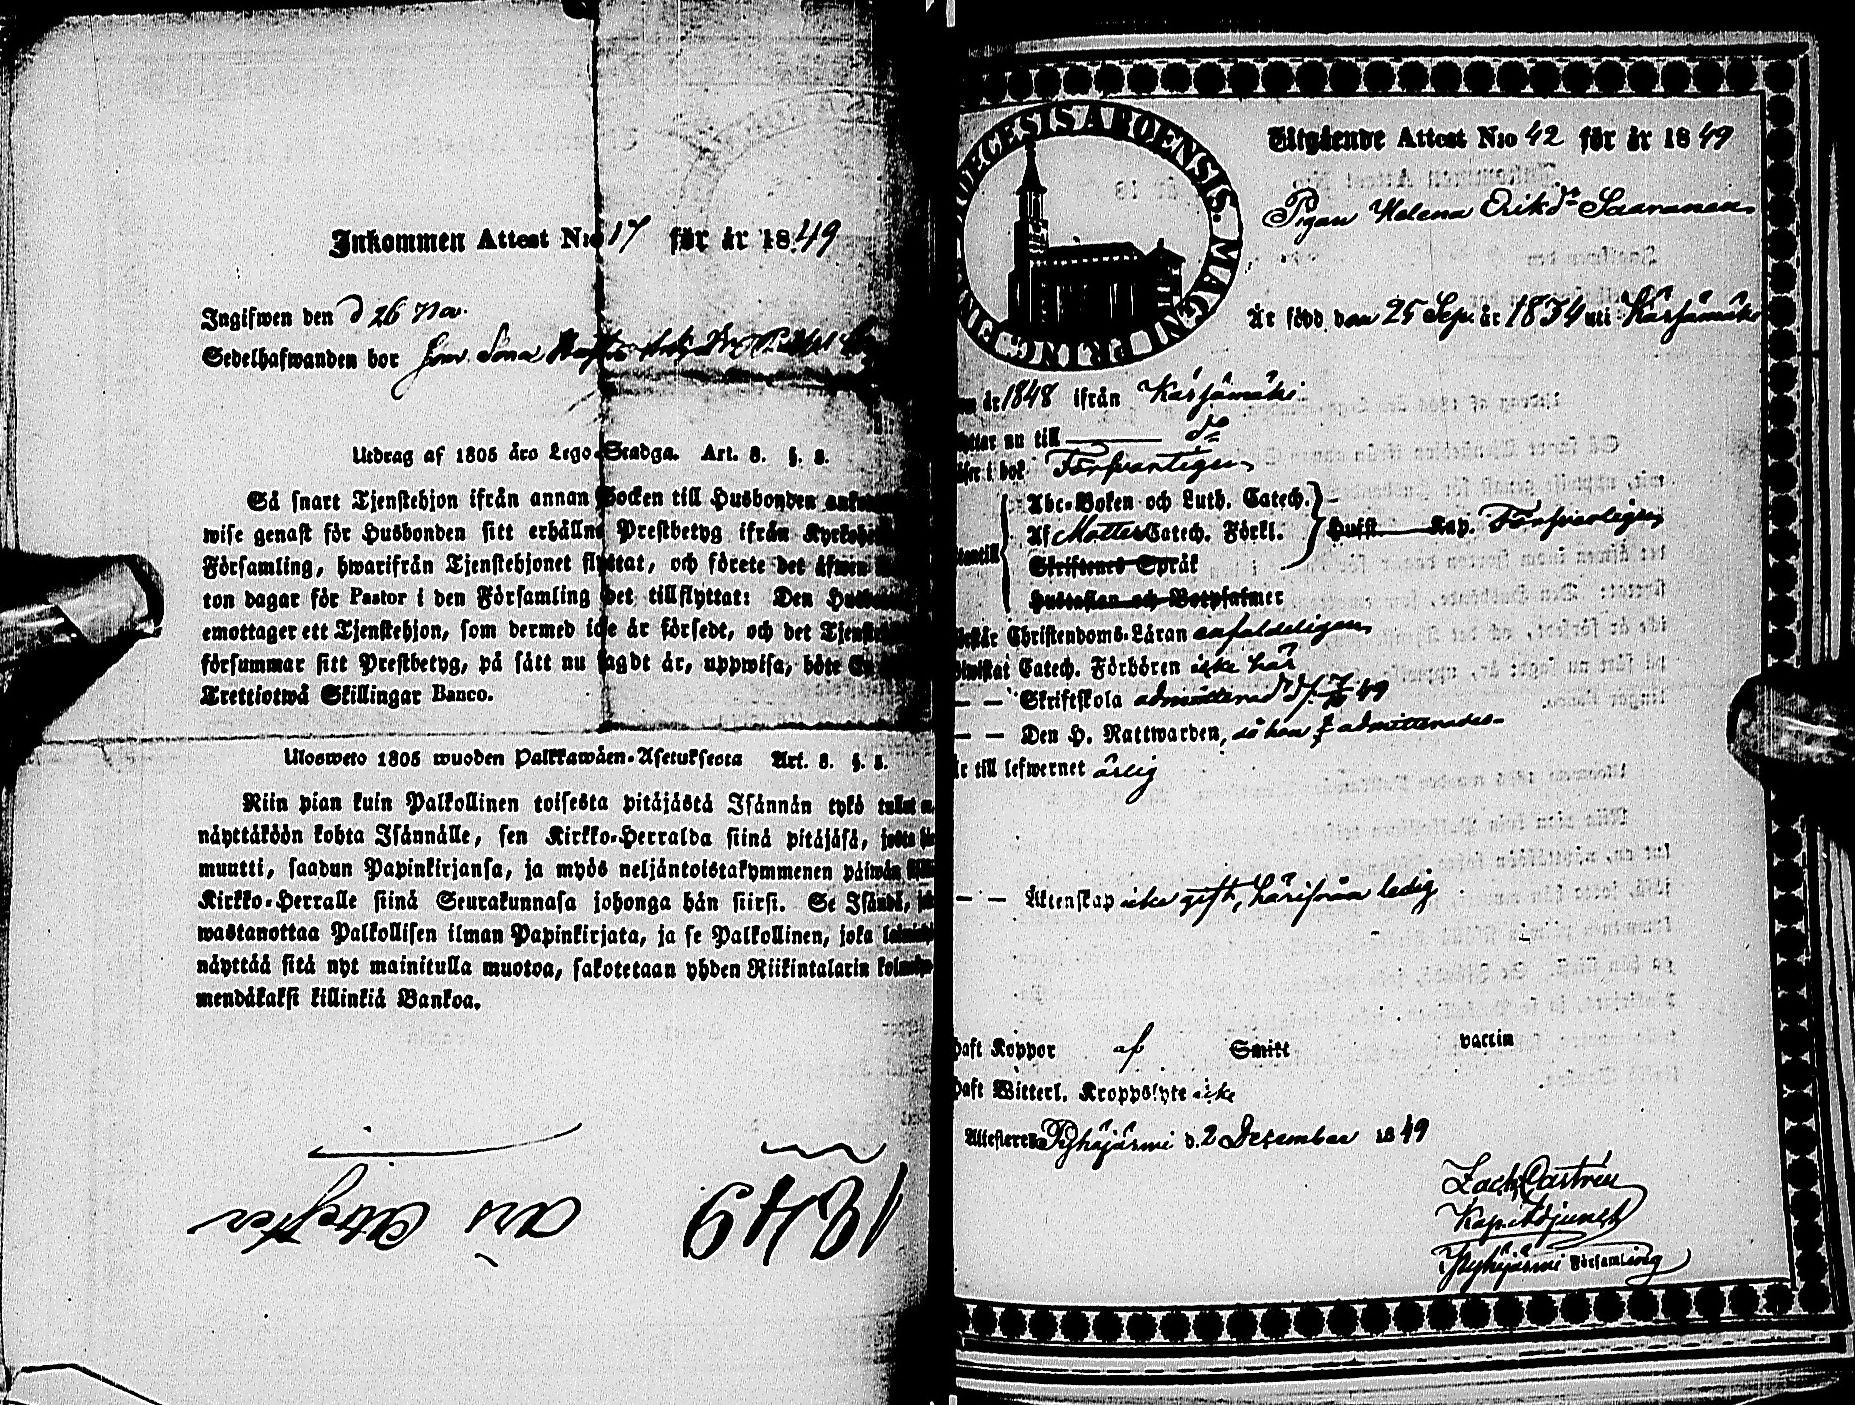 Inkommen Attest N:o 17 för år 1849
Ingifwen den d 26 Nov.
Sedelhafwanden bor
Utdrag af 1805 års Lego-Stadga. Art. 8. §. 8.
Så snart Tjenstehjon ifrån annan Socken till Husbonden
wise genast för Husbonden sitt erhållne Prestbetyg ifrån
Församling, hwarifrån Tjenstehjonet flyttat, och förete det äfwen
ton dagar för Pastor i den Församling det tillflyttat: Den
emottager ett Tjenstehjon, som dermed icke är försedt, och det
försummar sitt Prestbetyg, på sätt nu sagdt är, uppwisa, böte
Trettiotwå Skillingar Banco.
Ulosweto 1805 wuoden Palkkawäen-Asetuksesta Art. 8. §. 8.
Niin pian kuin Palkollinen toisesta pitäjästä Isännän tykö
näyttäköön kohta Isännälle, sen Kirkko-Herralda siinä pitäjäsä,
muutti, saadun Papinkirjansa, ja myös neljäntoistakymmenen päiwän
Kirkko-Herralle siinä Seurakunnasa johonga hän siirsi. Se Isändä,
wastanottaa Palkollisen ilman Papinkirjata, ja se Palkollinen, joka
näyttää sitä nyt mainitulla muotoa, sakotetaan yhden Riikintalarin
mendäkaksi killinkiä Bankoa.
1849 års Attester
DIOECESIS ABOENSIS. MAGNI PRINC. FINL.
Utgående Attest N:o 42 för år 1849
Pigan Helena Eriksdr Saaranen
Är född den 25 Sep. år 1834 uti Kärsämäki
år 1848 ifrån Kärsämäki
nu till do
i bok Försvarligen
Abc-Boken och Luth. Catech.
Af Catech. Förkl. Hust. Kap. Försvarligen
Skriftenes Språk
Hustaflan och Botpsalmer
Christendoms-Läran enfaldeligen
Catech. Förhören icke här
— — Skriftskola admitterad d. 7/10 49
— — Den H. Nattwarden, då hon admitterades
till lefwernet ärlig
— — Äktenskap icke gift, härifrån ledig
haft Koppor af Smitt vaccin
haft Witterl. Kroppslyte icke
Attesteras Pyhäjärwi d. 2 December 1849
Zach. Castrén
Kap. Adjunct
i Pyhäjärwi Församling